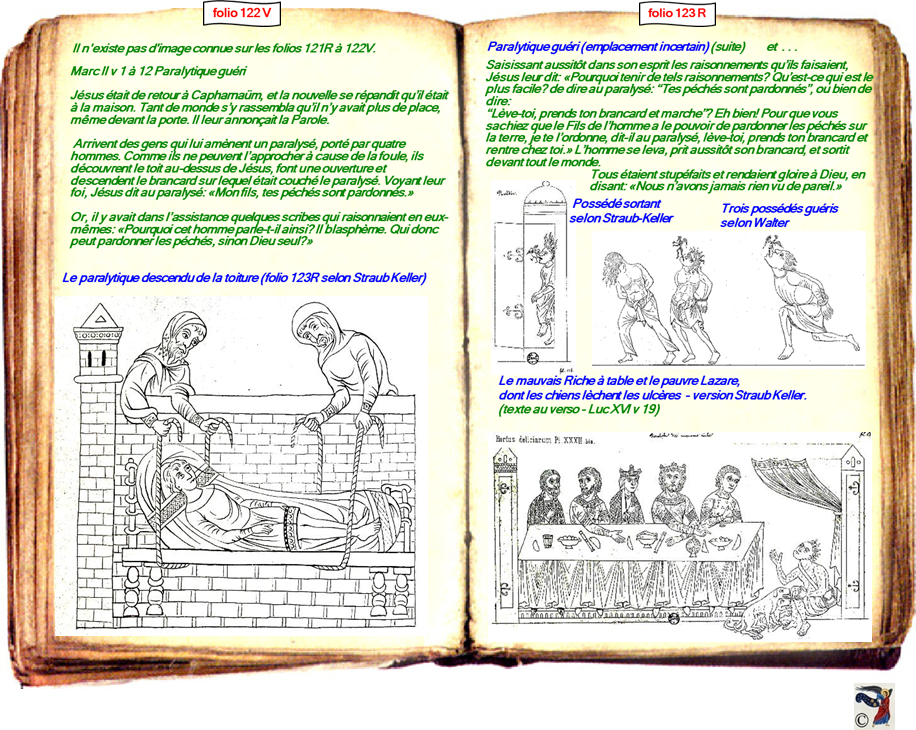 folio 122 V
Il n'existe pas d'image connue sur les folios 121R à 122V.
Marc II v 1 à 12 Paralytique guéri
Jésus était de retour à Capharnaüm, et la nouvelle se répandit qu'il était
à la maison. Tant de monde s'y rassembla qu'il n'y avait plus de place,
même devant la porte. Il leur annonçait la Parole.
Arrivent des gens qui lui amènent un paralysé, porté par quatre
hommes. Comme ils ne peuvent l'approcher à cause de la foule, ils
découvrent le toit au-dessus de Jésus, font une ouverture et
descendent le brancard sur lequel était couché le paralysé. Voyant leur
foi, Jésus dit au paralysé: «Mon fils, tes péchés sont pardonnés.»
Or, il y avait dans l'assistance quelques scribes qui raisonnaient en eux-
mêmes: «Pourquoi cet homme parle-t-il ainsi? Il blasphème. Qui donc
peut pardonner les péchés, sinon Dieu seul?»
Le paralytique descendu de la toiture (folio 123R selon Straub Keller)
folio 123 R
Paralytique guéri (emplacement incertain) (suite) et . . .
Saisissant aussitôt dans son esprit les raisonnements qu'ils faisaient,
Jésus leur dit: «Pourquoi tenir de tels raisonnements? Qu'est-ce qui est le
plus facile? de dire au paralysé: “Tes péchés sont pardonnés”, ou bien de
dire:
“Lève-toi, prends ton brancard et marche”? Eh bien! Pour que vous
sachiez que le Fils de l'homme a le pouvoir de pardonner les péchés sur
la terre, je te l'ordonne, dit-il au paralysé, lève-toi, prends ton brancard et
rentre chez toi.» L'homme se leva, prit aussitôt son brancard, et sortit
devant tout le monde.
Tous étaient stupéfaits et rendaient gloire à Dieu, en
disant: «Nous n'avons jamais rien vu de pareil.»
Possédé sortant
selon Straub-Keller
Trois possédés guéris
selon Walter
Le mauvais Riche à table et le pauvre Lazare,
dont les chiens lèchent les ulcères - version Straub Keller.
(texte au verso - Luc XVI v 19)
Hortus deliciarum Pl XXXII bis.
©